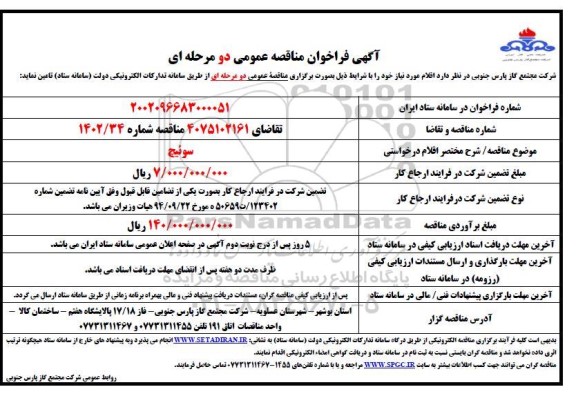 آگهی فراخوان مناقصه عمومی دو مرحله ای
شرکت مجتمع گاز پارس جنوبی در نظر دارد اقلام مورد نیاز خود را با شرایط ذیل بصورت برگزاری مناقصه عمومی دو مرحله ای از طریق سامانه تدارکات الکترونیکی دولت (سامانه ستاد) تامین نماید:
شماره فراخوان در سامانه ستاد ایران
2002096683000051
شماره مناقصه و تقاضا
تقاضای 4075102161 مناقصه شماره 1402/34
موضوع مناقصه/ شرح مختصر اقلام درخواستی
سوئیچ
مبلغ تضمین شرکت در فرایند ارجاع کار
7/000/000/000 ریال
نوع تضمین شرکت درفرایند ارجاع کار
تضمین شرکت در فرایند ارجاع کار بصورت یکی از تضامین قابل قبول وفق آیین نامه تضمین شماره
123402/ت50659 ه مورخ 94/09/22 هیات وزیران می باشد.
مبلغ برآوردی مناقصه
140/000/000/000 ریال
آخرین مهلت دریافت اسناد ارزیابی کیفی در سامانه ستاد
5 روز پس از درج نوبت دوم آگهی در صفحه اعلان عمومی سامانه ستاد ایران می باشد.
آخرین مهلت بارگذاری و ارسال مستندات ارزیابی کیفی
(رزومه) در سامانه ستاد
ظرف مدت دو هفته پس از انقضای مهلت دریافت اسناد می باشد.
آخرین مهلت بارگزاری پیشنهادات فنی / مالی در سامانه ستاد
پس از ارزیابی کیفی مناقصه گران، مستندات دریافت پیشنهاد فنی و مالی بهمراه برنامه زمانی از طریق سامانه ستاد ارسال می گردد.
آدرس مناقصه گزار
استان بوشهر – شهرستان عسلویه – شرکت مجتمع گاز پارس جنوبی– فاز 17/18 پالایشگاه هفتم – ساختمان کالا –
واحد مناقصات اتاق 191 تلفن 07731311455 و 07731311467
بدیهی است کلیه فرآیند برگزاری مناقصه الکترونیکی از طریق درگاه سامانه تدارکات الکترونیکی دولت (سامانه ستاد) به نشانی: WWW.SETADIRAN.IR انجام می پذیرد وبه پیشنهاد های خارج از سامانه ستاد هیچگونه ترتیب
اثری داده نخواهد شد و مناقصه گران بایستی نسبت به ثبت نام در سامانه ستاد و دریافت گواهی امضاء الکترونیکی اقدام نمایند.
مناقصه گران می توانند جهت کسب اطلاعات بیشتر به سایت WWW.SPGC.IR مراجعه و یا با شماره تلفن‌های 1455-07731311467 تماس حاصل فرمایند.
روابط عمومی شرکت مجتمع گاز پارس جنوبی